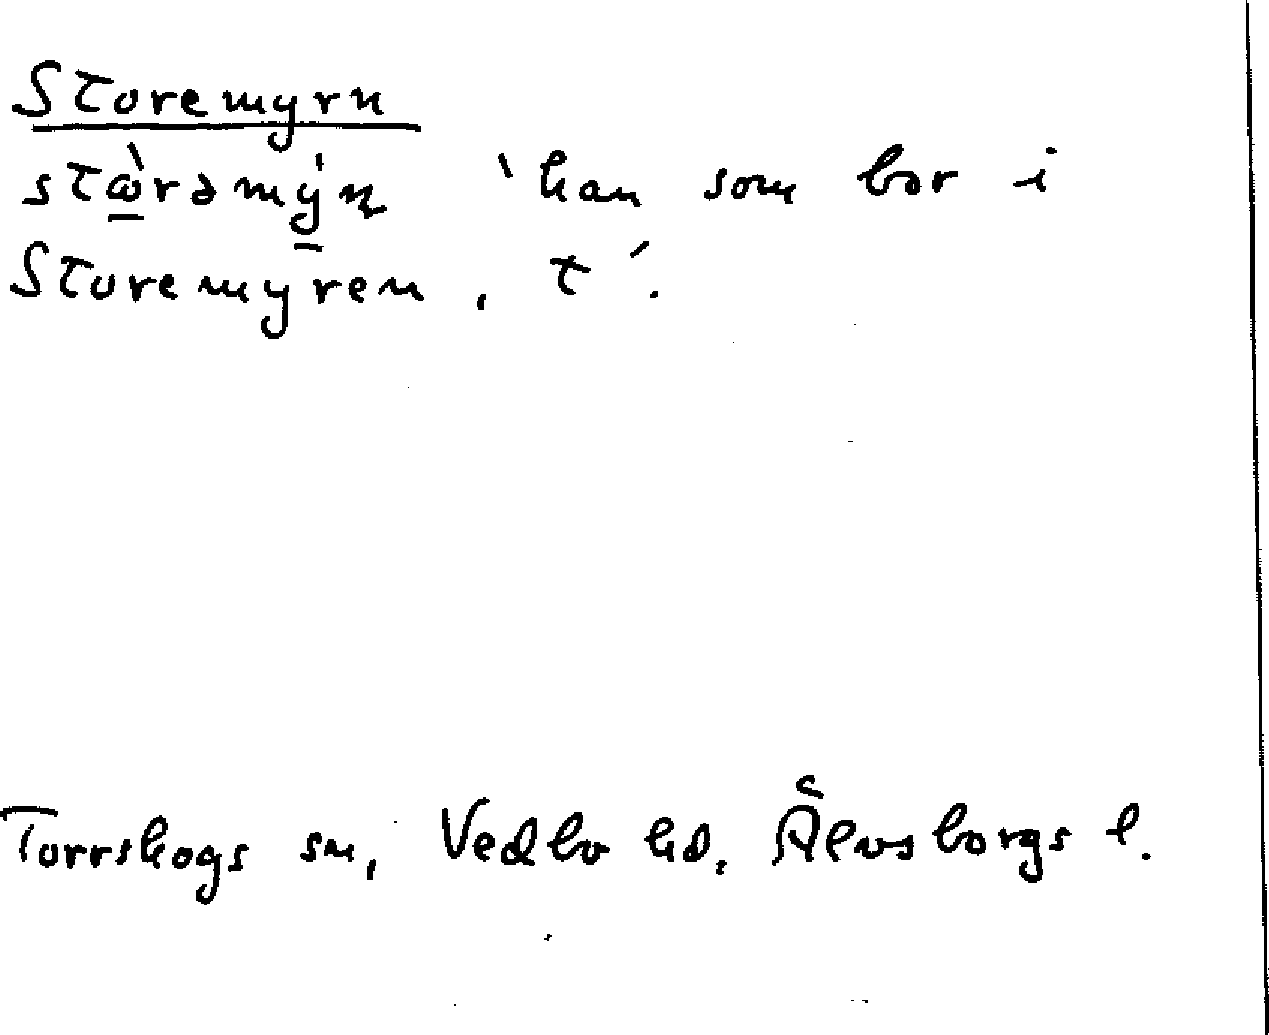 Storemyrn
stὼ̲rəmý̲ņ 'han som bor i
Storemyren, t'.
Torrskogs sn, Vedbo hd, Älvsborgs l.